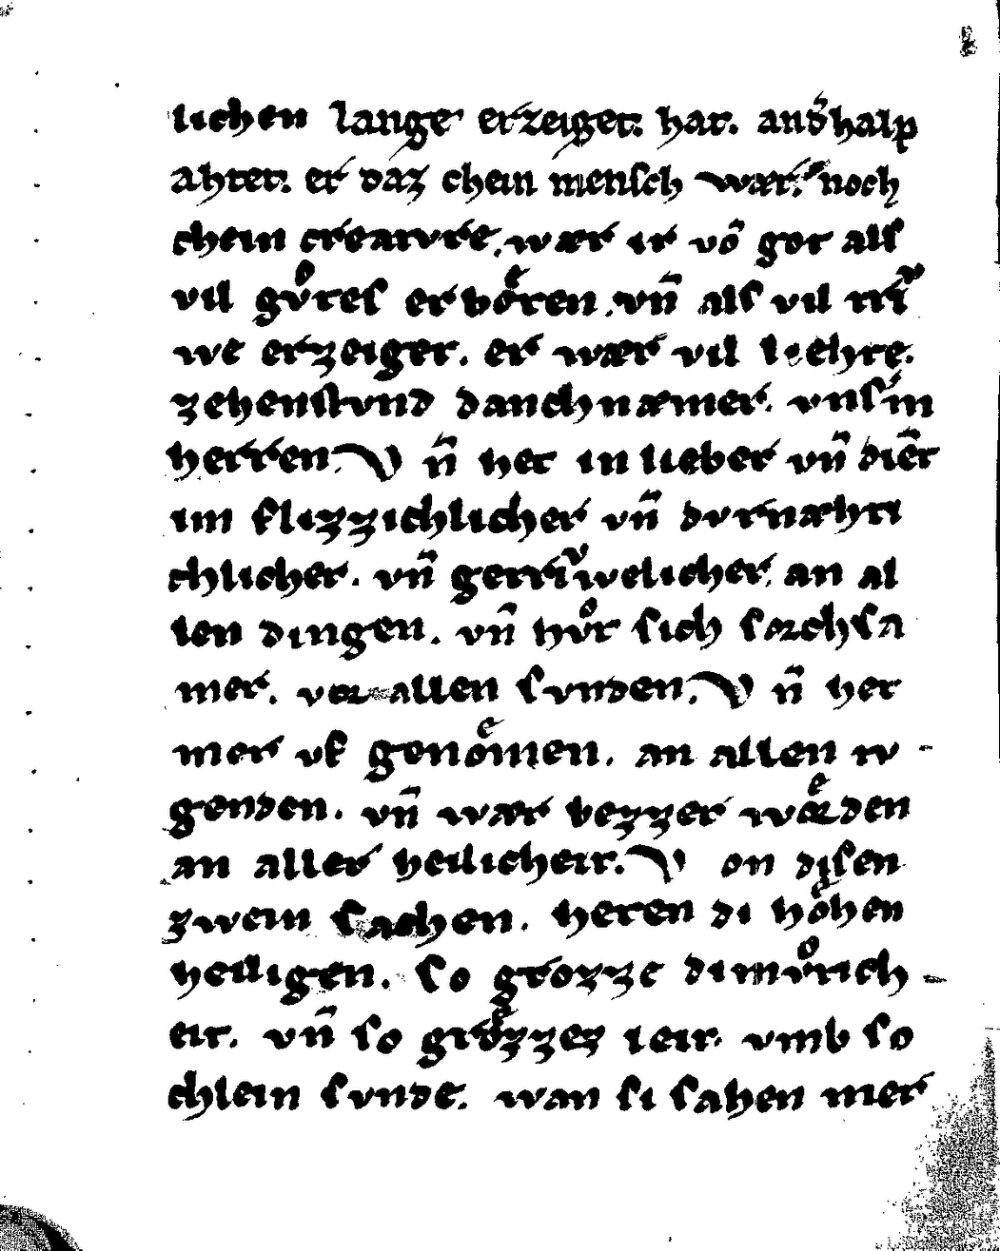 lichen lange erzeiget hat. andˢhalp
ahtet. er daz chein mensch wær. noch
chein creatvre. wær ir võ got alſ
vil gvͦteſ erboͤten. vñ alſ vil triͮ
we erzeiget. er wær vil liehte.
zehenſtvnd danchnæmer. vnſˢm
herren. Vñ het in lieber vñ diēt
im flizzichlicher vñ dvrnæhti
chlicher. vñ getriͮwelicher. an al
len dingen. vñ hvͦt ſich ſorchſa
mer. vor allen ſvnden. Vñ het
mer vf genoͤmen. an allen tv-
genden. vñ wær bezzer woͤrden
an aller heilicheit. Von diſen
zwein ſachen. heten di hoͤhen
heiligen. ſo grozze dimvͦtich-
eit. vñ ſo groͤzzez leit. vmb ſo
chlein ſvnde. wan ſi ſahen mer